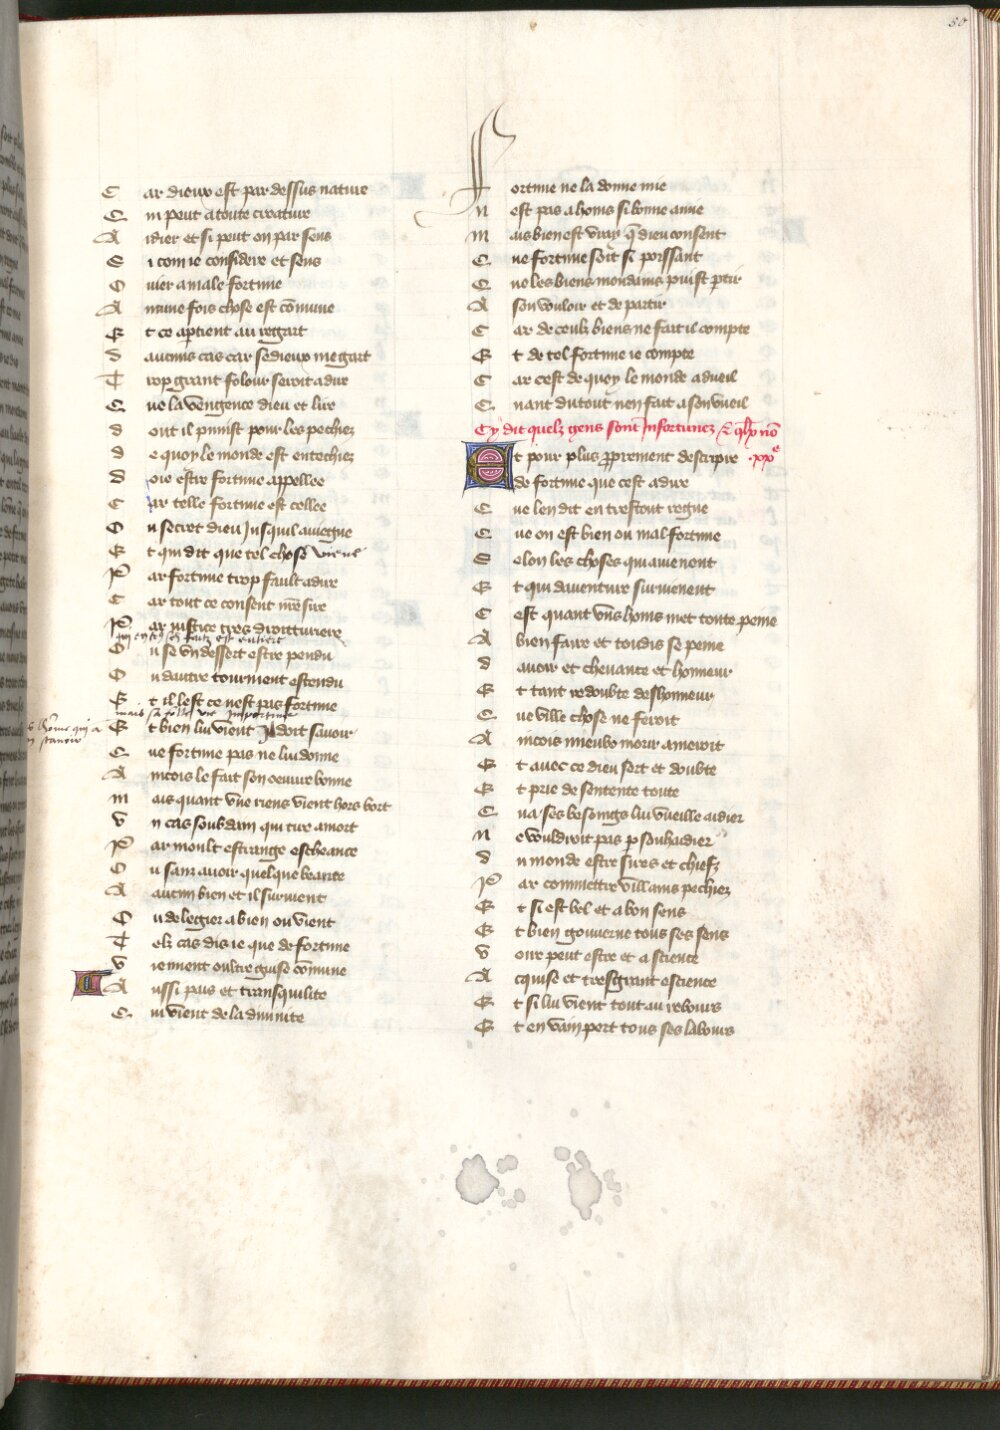 80
Car dieux est par dessus nature
Qui peut a toute creature
Aidier et si peut on par sens
Si com ie considere et sens
Ouier a male fortune
Aunune fois chose est cōmune
Et ce aptient au regart
daucuns cas car se dieux me gart
Trop grant folour seroit a dire
Que la vengence dieu et lire
dont il punist pour les pechiez
de quoy le monde est entechiez
doie estre fortune appellee
Car telle fortune est cellee
On secret dieu Jusquil auiegne
Et qui dit que tel chose viegne
Par fortune trop fault a dire
Car tout ce consent nr̄e sire
Par iustice tres droitturiere
qui en tous ses faitz est entiere
On se vn dessert estre pendu
On dautre tourment estendu
Et il lest ce nest pas fortune
mais sa folle vie Importune
Et bien lui vient Il doit sauoir
Que fortune pas ne lui donne
Aincois le fait son oeuure bonne
mais quant vne riens vient hors bort
Vn cas soubdain qui tire a mort
Par moult estrange escheance
Ou sanz auoir quelque beance
Aucun bien et il suruient
Ou de legier a bien ou vient
Telz cas dis ie que de fortune
Viennent oultre guise cōmune
Aussi pais et tranquilite
Qui vient de la diuinite
Fortune ne la donne mie
nest pas a homs si bonne amie
mais bien est vray q̄ dieu consent
Que fortune soit si poissant
Que les biens mondains puist ꝑtir
A son vouloir et departir
Car de ceulx biens ne fait il compte
Et de tel fortune ie compte
Car cest de quoy le monde a dueil
Quant du tout nen fait a son vueil
Cy dit quelz gens sont Infortunez ⁊ q̄lx nō
Et pour plus ꝓprement descripre .xxxe
de fortune que cest a dire
Que len dit en trestout regne
Que on est bien ou mal fortune
Selon les choses qui auienent
Et qui dauenture suruienent
Cest quant vns homs met toute peine
A bien faire et toudis se peine
dauoir et cheuance et honneur
Et tant redoubte deshonneur
Que ville chose ne feroit
Aincois mieulx morir ameroit
Et auec ce dieu sert et doubte
Et prie de sentente toute
Qua ses besoings lui vueille aidier
ne vouldroit pas ꝑ souhaidier
du monde estre sires et chiefz
Par commettre villains pechiez
Et si est bel et a bon sens
Et bien gouuerne tous ses sens
Voire peut estre et a science
Acquise et tresgrant escience
Et si lui vient tout au rebours
Et en vain pert tous ses labours